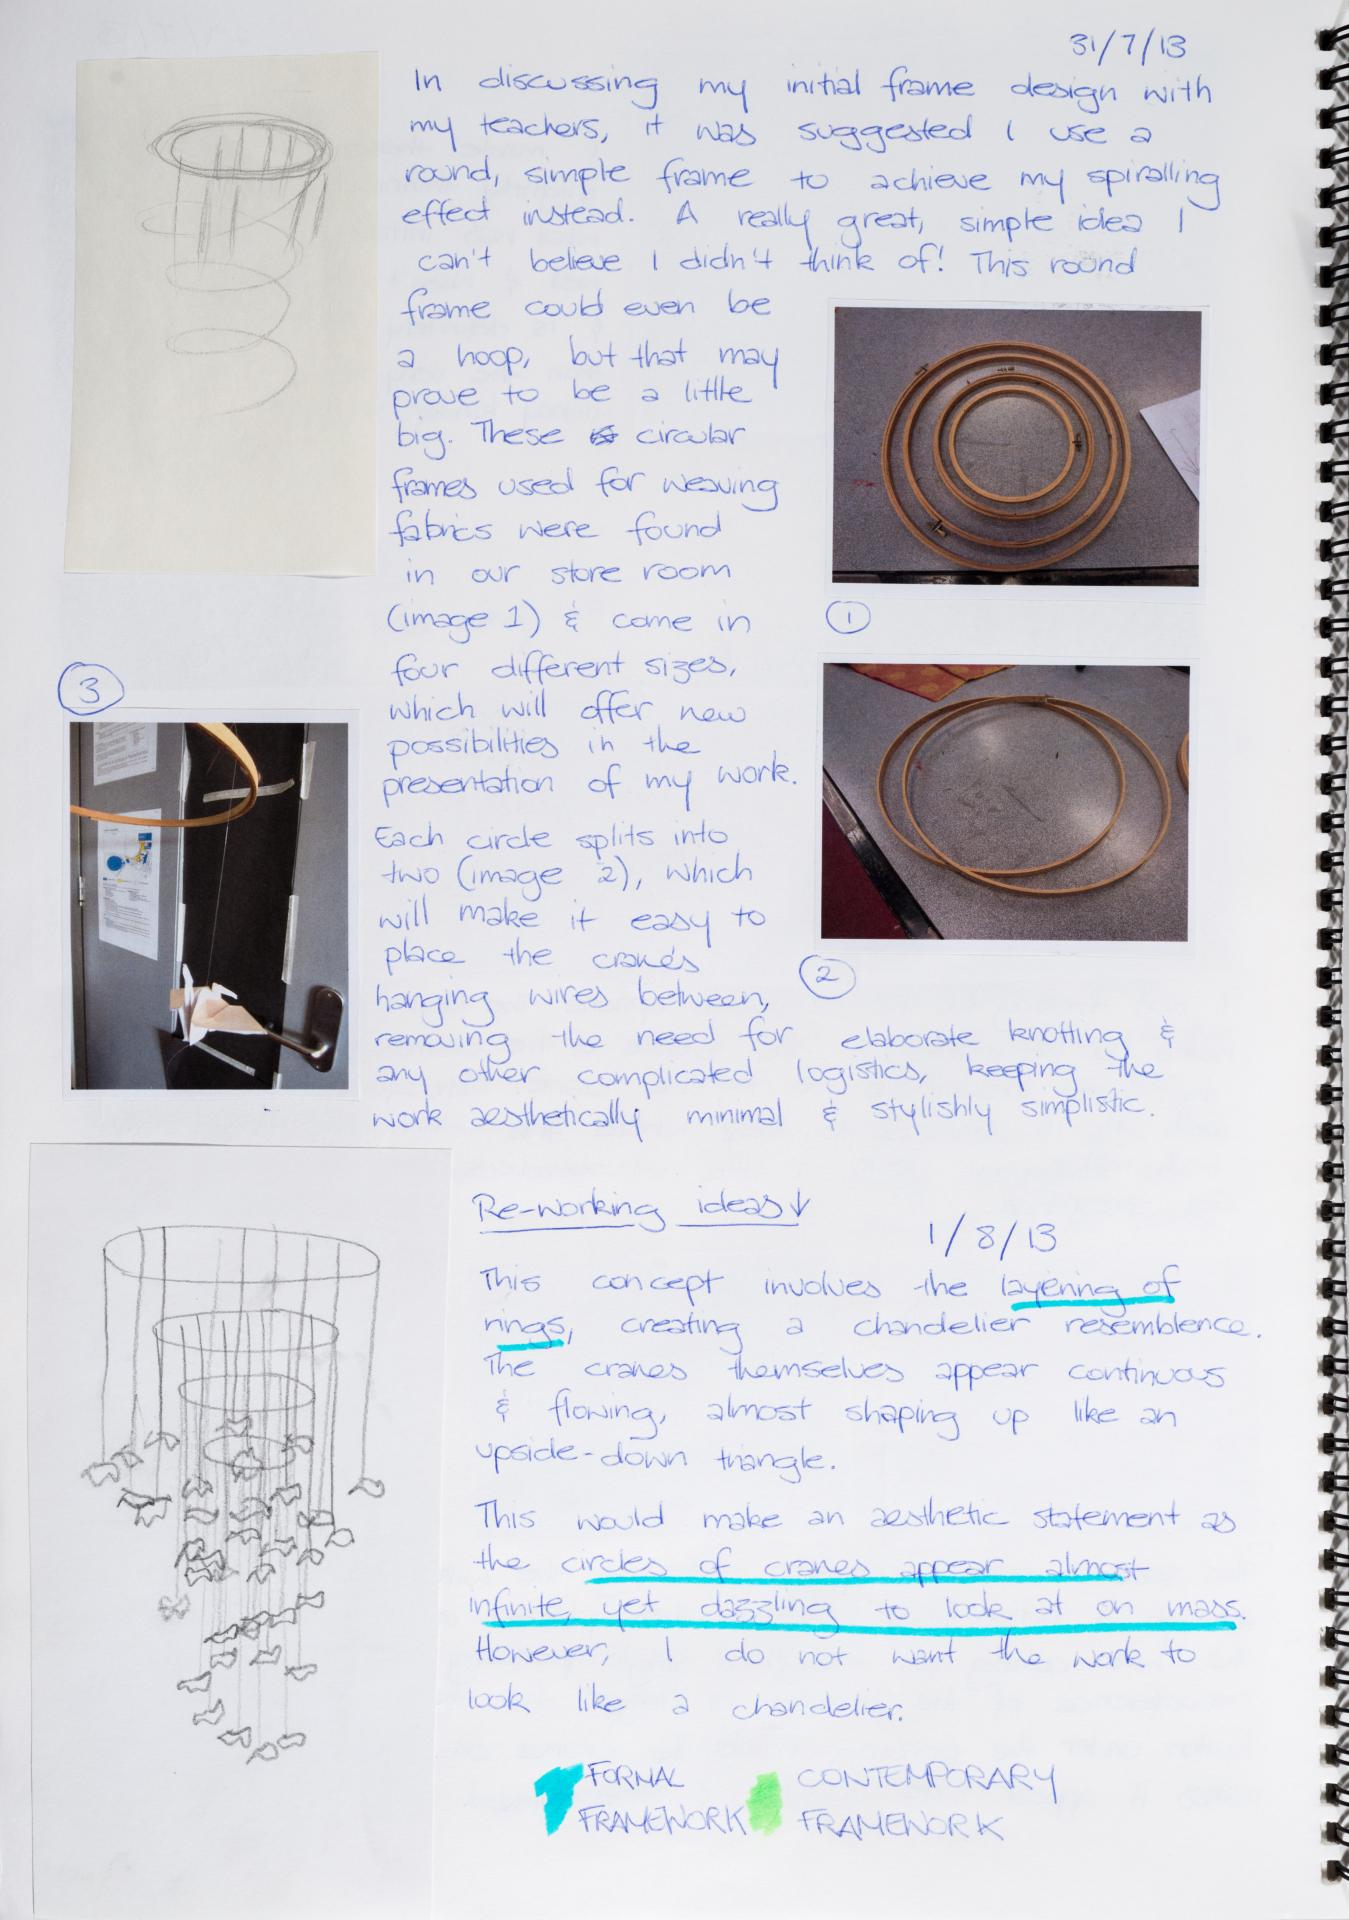 31/7/13
In discussing my initial frame design with
my teachers, it was suggested I use a
round, simple frame to achieve my spiralling
effect instead. A really great, simple idea I
can't believe I didn't think of! This round
frame could even be
a hoop, but that may
prove to be a little
big. These circular
frames used for weaving
fabrics were found
in our store room
(image 1) & come in
four different sizes,
which will offer new
possibilities in the
presentation of my work.
Each circle splits into
two (image 2), which
will make it easy to
place the crane's
hanging wires between,
removing the need for elaborate knotting &
any other complicated logistics, keeping the
work aesthetically minimal & stylishly simplistic.
1
2
3
Re-working ideas ↓
1/8/13
This concept involves the layering of
rings, creating a chandelier resemblence.
The cranes themselves appear continuous
& flowing, almost shaping up like an
upside-down triangle.
This would make an aesthetic statement as
the circles of cranes appear almost
infinite, yet dazzling to look at on mass.
However, I do not want the work to
look like a chandelier.
FORMAL
FRAMEWORK
CONTEMPORARY
FRAMEWORK